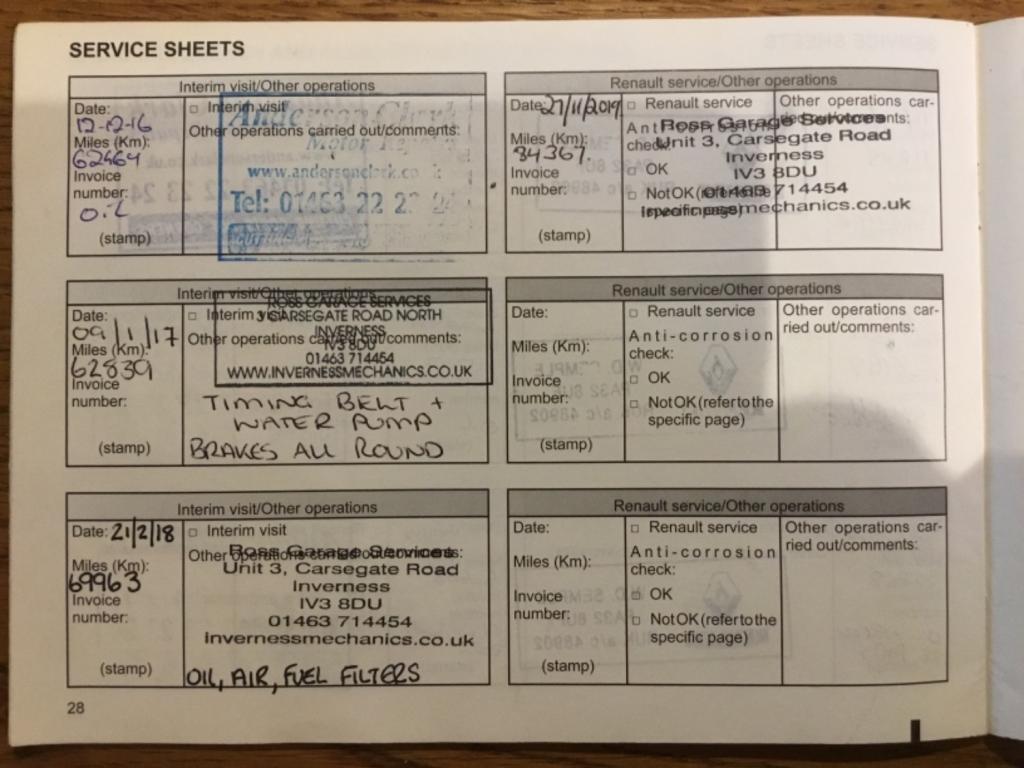 SERVICE SHEETS
Interim visit/Other operations
Date:
12-12-16
Miles (Km):
62464
Invoice
number:
OiL
(stamp)
□ Interim visit
Other operations carried out/comments:
Anderson Clark
Motor Repairs
www.andersonclark.co
Tel: 01463 22 2
Interim visit/Other operations
Date:
09/1/17
Miles (Km):
62839
Invoice
number:
(stamp)
□ Interim visit
Other operations carried out/comments:
ROSS GARAGE SERVICES
3 CARSEGATE ROAD NORTH
INVERNESS
IV3 8DU
01463 714454
WWW.INVERNESSMECHANICS.CO.UK
TIMING BELT +
WATER PUMP
BRAKES ALL ROUND
Interim visit/Other operations
Date: 21/2/18
Miles (Km):
69963
Invoice
number:
(stamp)
□ Interim visit
Other operations carried out/comments:
Ross Garage Services
Unit 3, Carsegate Road
Inverness
IV3 8DU
01463 714454
invernessmechanics.co.uk
OIL, AIR, FUEL FILTERS
28
Renault service/Other operations
Date: 27/11/2019
Miles (Km):
84367
Invoice
number:
(stamp)
□ Renault service
Anti-corrosion
check:
□ OK
□ Not OK (refer to the
specific page)
Other operations car-
ried out/comments:
Ross Garage Services
Unit 3, Carsegate Road
Inverness
IV3 8DU
01463 714454
invernessmechanics.co.uk
Renault service/Other operations
Date:
Miles (Km):
Invoice
number:
(stamp)
□ Renault service
Anti-corrosion
check:
□ OK
□ Not OK (refer to the
specific page)
Other operations car-
ried out/comments:
Renault service/Other operations
Date:
Miles (Km):
Invoice
number:
(stamp)
□ Renault service
Anti-corrosion
check:
□ OK
□ Not OK (refer to the
specific page)
Other operations car-
ried out/comments: